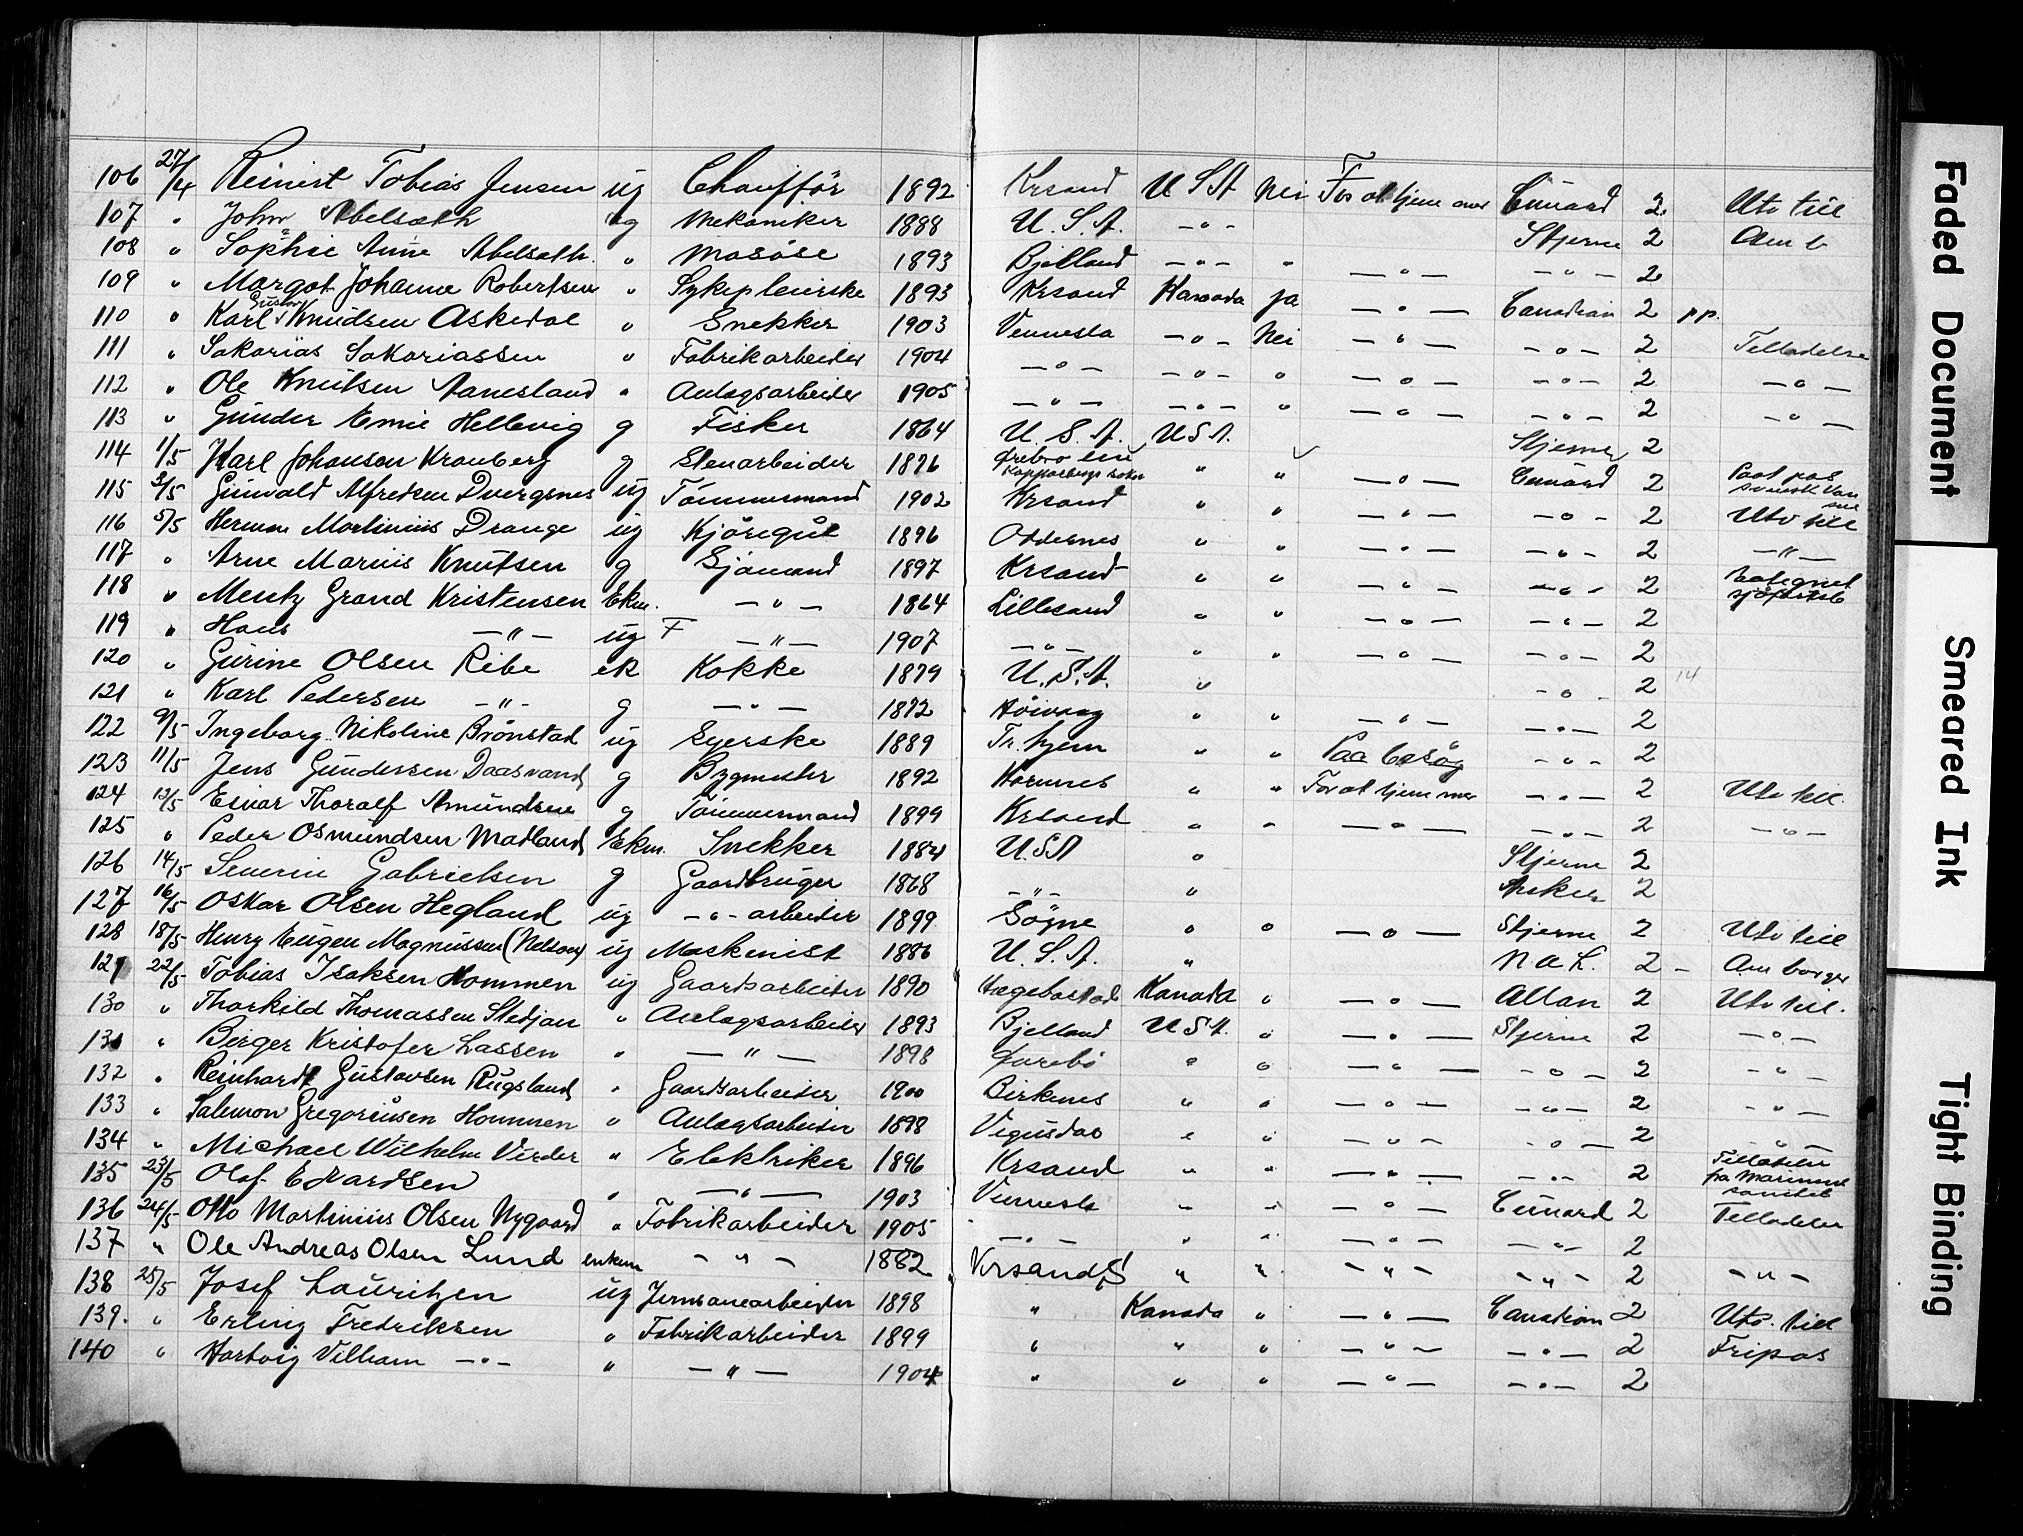 106 27/4 Reinert Tobias Jensen ug Chauffør 1892 Krsand U S A Nei For at tjene mer Cunard 2 Utv till
107 " John Abelseth ug Mekaniker 1888 U. S. A. -"- Stjerne 2 Am b
108 " Sophie Anne Abelseth " Masöse 1893 Bjelland -"- " -"- -"- 2
109 " Margot Johanne Robertsen " Sykepleierske 1893 Krsand Kanada ja -"- Canadian 2 pp.
110 " Karl Gustav Knudsen Askedal " Snekker 1903 Vennesla -"- Nei -"- -"- 2 Tilladelse
111 " Sakarias Sakariassen " Fabrikarbeider 1904 -"- -"- " -"- -"- 2 -"-
112 " Ole Knutsen Aanesland " Anlegsarbeider 1905 -"- -"- " -"- -"- 2 -"-
113 " Gunder Emie Hellevig g Fisker 1864 U. S. A. U S A. Stjerne 2
114 1/5 Karl Johansen Kranberg g Stenarbeider 1876 Ørebro len " " -"- Cunard 2 Paat pas svensk
115 3/5 Gunvald Alfredsen Dvergsnes ug Tømmermand 1902 Krsand " " -"- -"- 2 Utv till
116 5/5 Herman Martinius Drange ug Kjøregut 1896 Oddernes " " -"- -"- 2 -"-
117 " Arne Marius Knutsen g Sjømand 1897 Krsand " " -"- -"- 2 Paategnet sjøfartsb
118 " Mentz Grand Kristensen Ekm. -"- 1864 Lillesand " " -"- -"- 2
119 " Hans -"- ug F -"- 1907 -"- " " -"- -"- 2
120 " Gurine Olsen Ribe ek Kokke 1879 U. S. A. " -"- 2 14
121 " Karl Pedersen -"- g -"- 1872 Høivaag " " -"- -"- 2
122 9/5 Ingeborg Nikoline Brønstad ug Syerske 1889 Tr. hjem " " Paa besøg -"- 2
123 11/5 Jens Gundersen Daasvand g Bygmester 1892 Hornnes " " For at tjene mer -"- 2 Utv till.
124 12/5 Einar Thoralf Amundsen g Tømmermand 1899 Krsand " " -"- -"- 2 -"-
125 " Peder Osmundsen Madland Ekm. Snekker 1884 U.S.A " Stjerne 2
126 14/5 Severin Gabrielsen g Gaardbruger 1868 -"- " Anker 2
127 16/5 Oskar Olsen Hegland ug -"- arbeider 1899 Søgne " " -"- Stjerne 2 Utv till
128 18/5 Henry Eugen Magnussen (Nelson) ug Maskinist 1886 U. S. A. " N A L. 2 - Am borger
129 22/5 Tobias Isaksen Hommen ug Gaardsarbeider 1890 Hægebostad Kanada " -"- Allan 2 Utv till.
130 " Thorkild Thomassen Stedjan " Anlegsarbeider 1893 Bjelland U S A. " -"- Stjerne 2 -"-
131 " Berger Kristofer Lassen " -"- 1898 Øvrebø " " -"- -"- 2 -"-
132 " Reinhardt Gustavsen Rugsland " Gaardsarbeider 1900 Birkenes " " -"- -"- 2 -"-
133 " Salemon Gregoriusen Hommen " Anlegsarbeider 1898 Vegusdal " " -"- -"- 2 -"-
134 " Michael Wilhelm Virder " Elektriker 1896 Krsand " " -"- -"- 2 Tilladelse fra Marinens sanitet
135 23/5 Olaf Edvardsen " -"- 1903 Vennesla " " -"- Cunard 2 Tilladelse
136 24/5 Otto Martinius Olsen Nygaard " Fabrikarbeider 1905 -"- " " -"- -"- 2
137 " Ole Andreas Olsen Lund enkem -"- 1882 Krsand S " " -"- -"- 2 -"-
138 25/5 Josef Lauritzen ug Jernbanearbeider 1898 " Kanada " -"- Canadian 2 Utv. till
139. " Erling Fredriksen " Fabrikarbeider 1899 " " " -"- -"- 2 Fripas
140 " Hartvig Vilham -"- " -"- 1904 " " " -"- -"- 2
Faded Document
Smeared Ink
Tight Binding